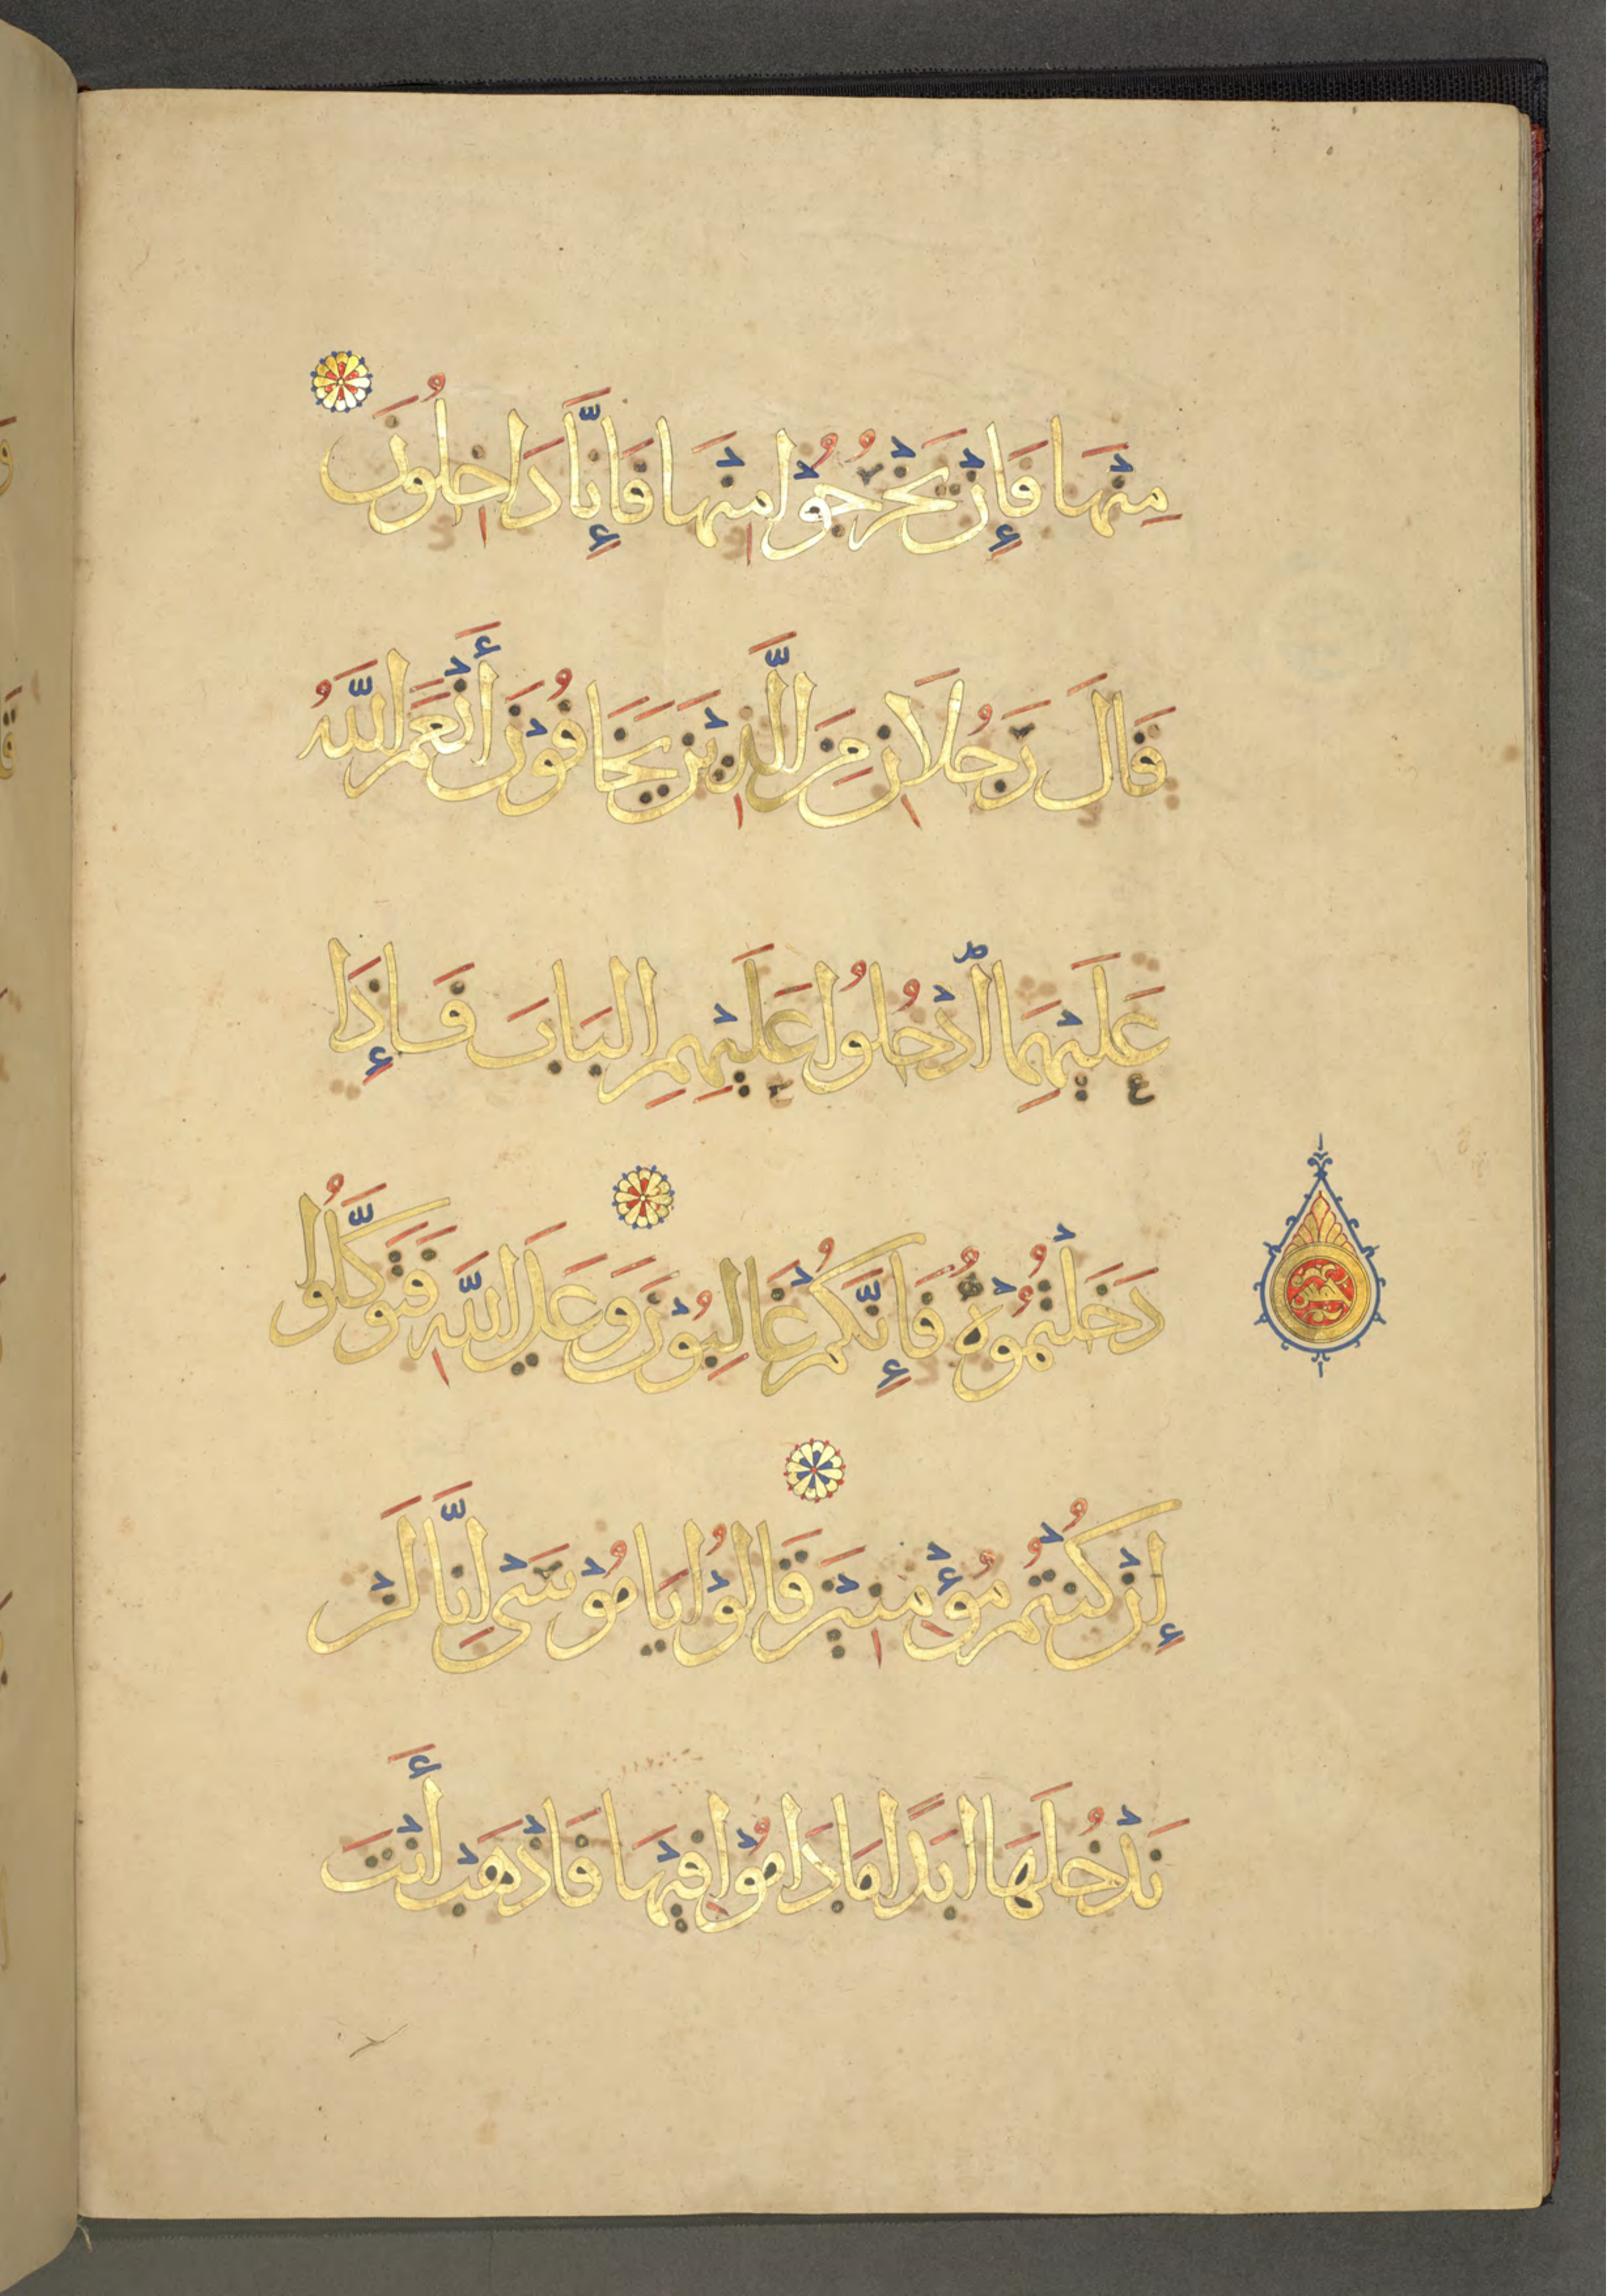 مِنْهَا فَإِنْ يَخْرُجُوْا مِنْهَا فَإِنَّا دَاخِلُونَ
قَالَ رَجُلَانِ مِنَ الَّذِيْنَ يَخَافُوْنَ أَنْعَمَ اللَّهُ
عَلَيْهِمَا ادْخُلُوا عَلَيْهِمِ الْبَابَ فَإِذَا
دَخَلْتُمُوْهُ فَإِنَّكُمْ غَالِبُوْنَ وَعَلَى اللَّهِ فَتَوَكَّلُوا
إِنْ كُنْتُمْ مُؤْمِنِيْنَ قَالُوْا يَا مُوْسَى إِنَّا لَنْ
نَدْخُلَهَا ابَدًا مَا دَامُوْا فِيْهَا فَاذْهَبْ أَنْتَ
خمس